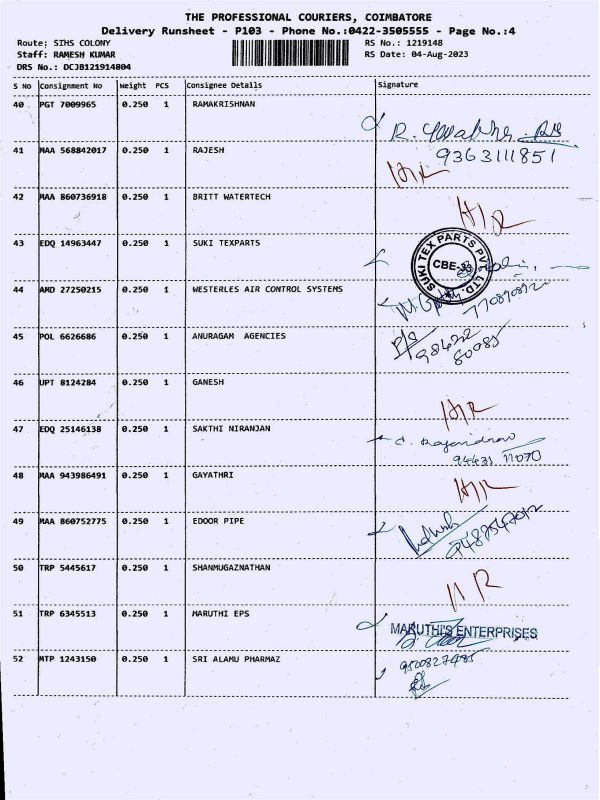 THE PROFESSIONAL COURIERS, COIMBATORE
Delivery Runsheet - P103 - Phone No.:0422-3505555 - Page No.:4
Route: SIHS COLONY RS No.: 1219148
Staff: RAMESH KUMAR RS Date: 04-Aug-2023
DRS No.: DCJB121914804
S No Consignment No Weight PCS Consignee Details Signature
40 PGT 7009965 0.250 1 RAMAKRISHNAN
9363111851
41 MAA 568842017 0.250 1 RAJESH
42 MAA 860736918 0.250 1 BRITT WATERTECH
43 EDQ 14963447 0.250 1 SUKI TEXPARTS
SUKI TEX PARTS PVT. LTD.
CBE-33
44 AMD 27250215 0.250 1 WESTERLES AIR CONTROL SYSTEMS
45 POL 6626686 0.250 1 ANURAGAM AGENCIES
98422
80085
46 UPT 8124284 0.250 1 GANESH
47 EDQ 25146138 0.250 1 SAKTHI NIRANJAN
94431 11070
48 MAA 943986491 0.250 1 GAYATHRI
49 MAA 860752775 0.250 1 EDOOR PIPE
50 TRP 5445617 0.250 1 SHANMUGAZNATHAN
51 TRP 6345513 0.250 1 MARUTHI EPS
MARUTHI'S ENTERPRISES
52 MTP 1243150 0.250 1 SRI ALAMU PHARMAZ
9500827485